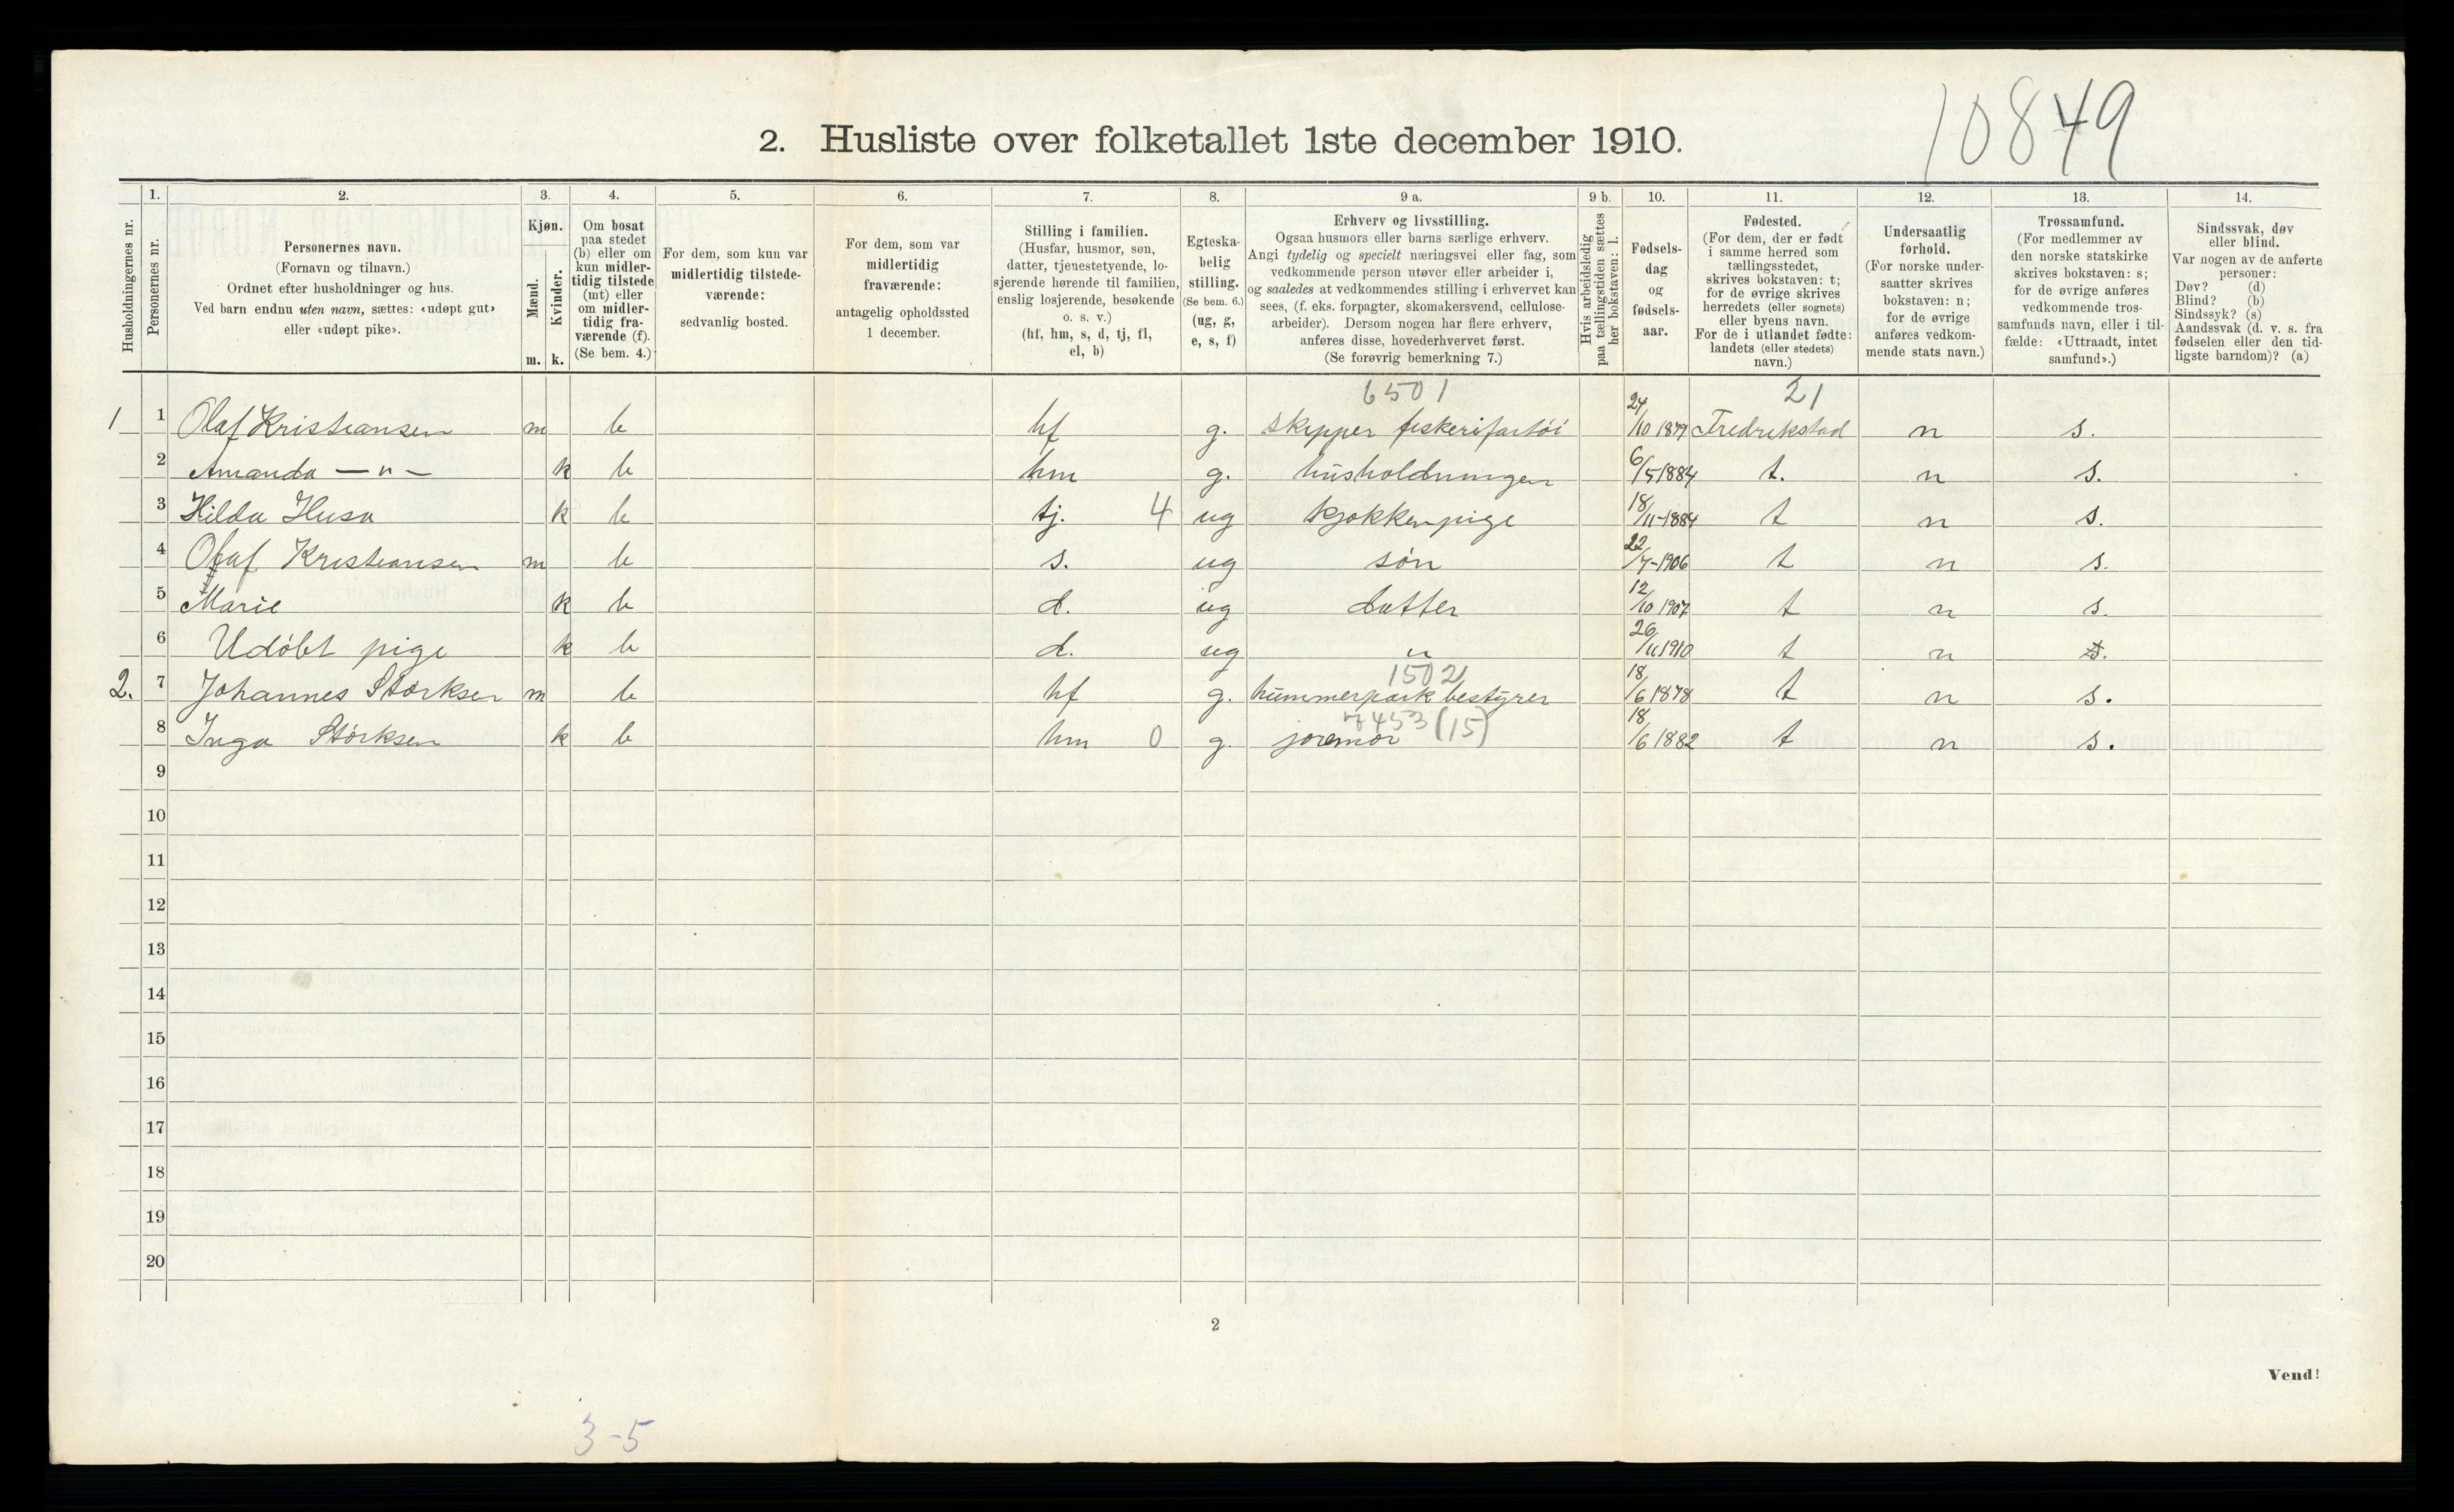 10849
2. Husliste over folketallet 1ste december 1910.
Husholdningernes nr.
1.
Personernes nr.
2.
Personernes navn.
(Fornavn og tilnavn.)
Ordnet efter husholdninger og hus.
Ved barn endnu uten navn, sættes: «udøpt gut»
eller «udøpt pike».
3.
Kjøn.
Mænd.
Kvinder.
m. k.
4.
Om bosat
paa stedet
(b) eller om
kun midler-
tidig tilstede
(mt) eller
om midler-
tidig fra-
værende (f).
(Se bem. 4.)
5.
For dem, som kun var
midlertidig tilstede-
værende:
sedvanlig bosted.
6.
For dem, som var
midlertidig
fraværende:
antagelig opholdssted
1 december.
7.
Stilling i familien.
(Husfar, husmor, søn,
datter, tjenestetyende, lo-
sjerende hørende til familien,
enslig losjerende, besøkende
o. s. v.)
(hf, hm, s, d, tj, fl,
el, b)
8.
Egteska-
belig
stilling.
(Se bem. 6.)
(ug, g,
e, s, f)
9 a.
Erhverv og livsstilling.
Ogsaa husmors eller barns særlige erhverv.
Angi tydelig og specielt næringsvei eller fag, som
vedkommende person utøver eller arbeider i,
og saaledes at vedkommendes stilling i erhvervet kan
sees, (f. eks. forpagter, skomakersvend, cellulose-
arbeider). Dersom nogen har flere erhverv,
anføres disse, hovederhvervet først.
(Se forøvrig bemerkning 7.)
9 b.
Hvis arbeidsledig
paa tællingstiden sættes
her bokstaven: l.
10.
Fødsels-
dag
og
fødsels-
aar.
11.
Fødested.
(For dem, der er født
i samme herred som
tællingsstedet,
skrives bokstaven: t;
for de øvrige skrives
herredets (eller sognets)
eller byens navn.
For de i utlandet fødte:
landets (eller stedets)
navn.)
12.
Undersaatlig
forhold.
(For norske under-
saatter skrives
bokstaven: n;
for de øvrige
anføres vedkom-
mende stats navn.)
13.
Trossamfund.
(For medlemmer av
den norske statskirke
skrives bokstaven: s;
for de øvrige anføres
vedkommende tros-
samfunds navn, eller i til-
fælde: «Uttraadt, intet
samfund».)
14.
Sindssvak, døv
eller blind.
Var nogen av de anførte
personer:
Døv? (d)
Blind? (b)
Sindssyk? (s)
Aandssvak (d. v. s. fra
fødselen eller den tid-
ligste barndom)? (a)
6501 21
1 1 Olaf Kristiansen m b hf g. skipper fiskerifartöi 24/10 1879 Fredrikstad n s.
2 Amanda — " — k b hm g. husholdningen 6/5 1884 t. n s.
3 Hilda Husa k b tj. 4 ug kjøkkenpige 18/11-1884 t n s.
4 Olaf Kristiansen m b s. ug søn 22/7-1906 t n s.
5 Marie k b d. ug datter 12/10 1907 t n s.
6 Udöbt pige k b d. ug " 26/11 1910 t n s.
1502
2. 7 Johannes Störksen m b hf g. hummerpark bestyrer 18/6 1878 t n s.
7453 (15)
8 Inga Störksen k b hm 0 g. joremor 18/6 1882 t n s.
9
10
11
12
13
14
15
16
17
18
19
20
2
Vend!
3-5